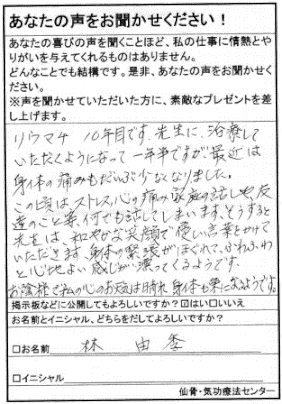 あなたの声をお聞かせください！
あなたの喜びの声を聞くことほど、私の仕事に情熱とや
りがいを与えてくれるものはありません。
どんなことでも結構です。是非、あなたの声をお聞かせく
ださい。
※声を聞かせていただいた方に、素敵なプレゼントを差
し上げます。
リウマチ 10年目です。先生に、治療して
いただくようになって一年半ですが、最近は
身体の痛みもだいぶ少なくなりました。
この頃はストレス、心の痛み、家庭の話しや友
達のこと等、何でも話してしまいます。そうすると
先生は、和やかな笑顔で優しい言葉をかけて
いただき、身体の緊張がほぐれて、ふわふわ
と心地よい感じが漂ってくるようです。
お陰様で私の心のお天気は晴れ、身体も楽になるようです。
掲示板などに公開してもよろしいですか？☑はい□いいえ
お名前とイニシャル、どちらをだしてよろしいですか？
□お名前 林 由季
□イニシャル
仙骨・気功療法センター